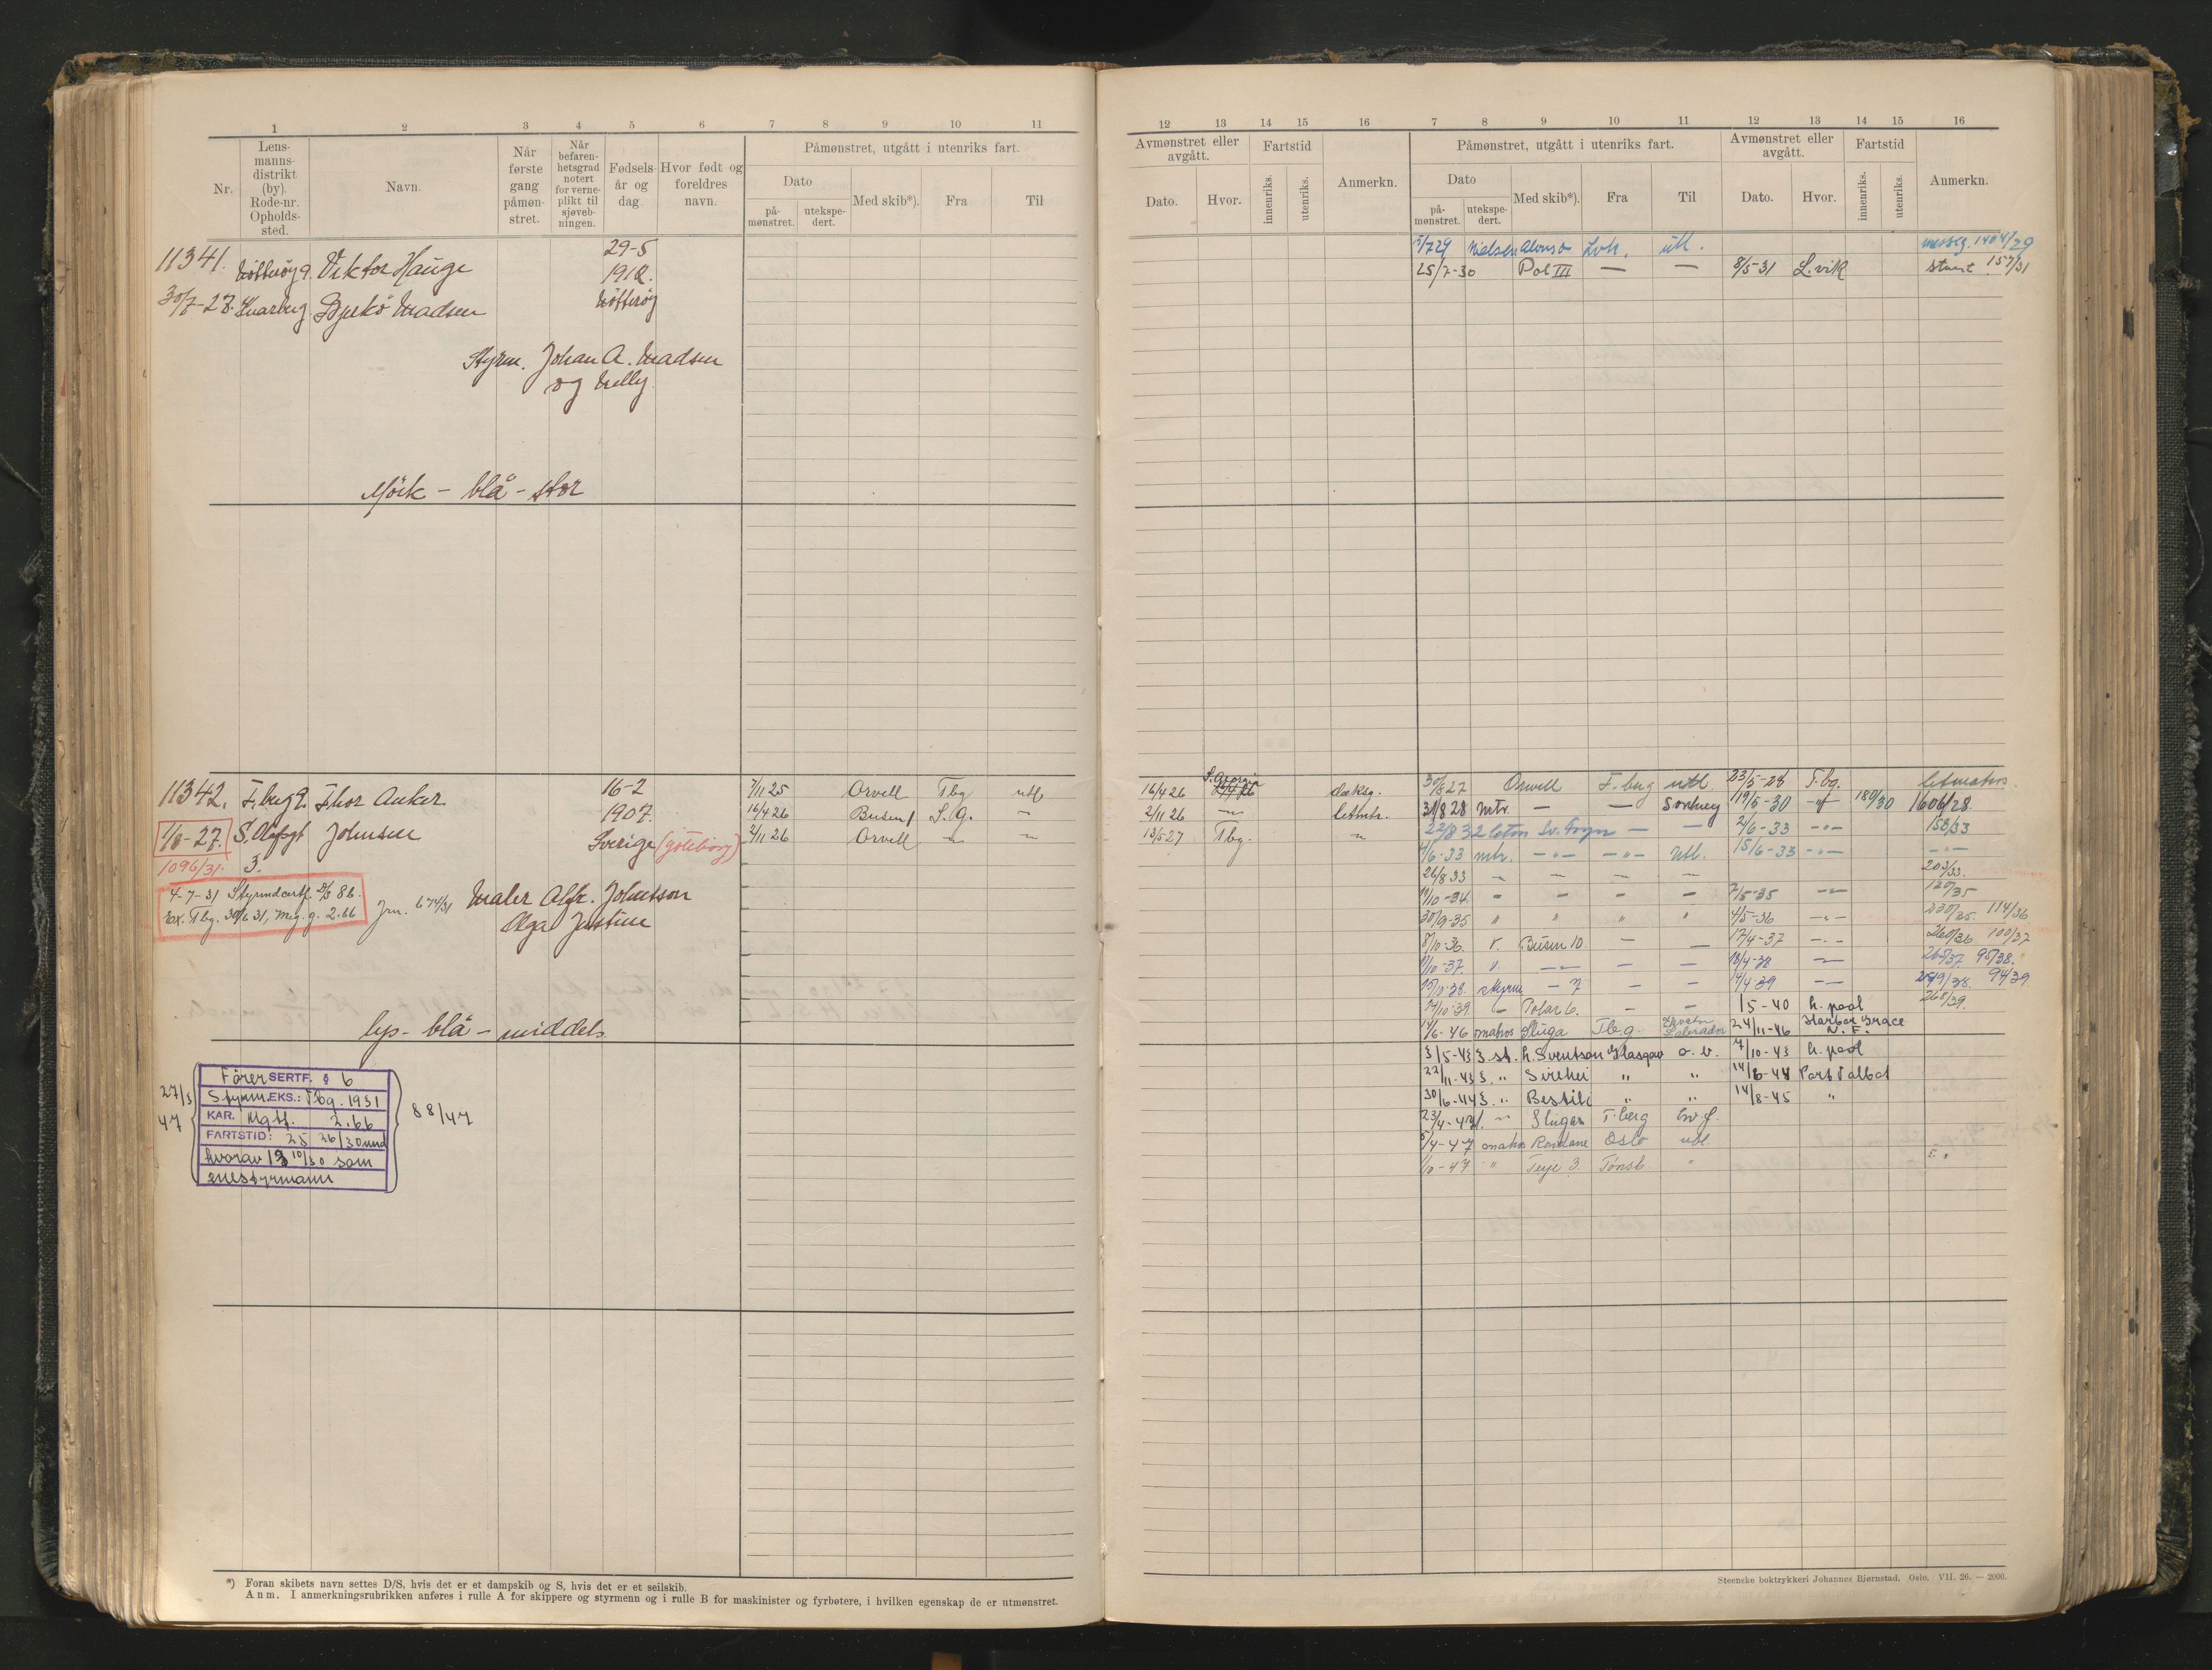 1 2 3 4 5 6 7 8 9 10 11
Nr.
Lens-
manns-
distrikt
(by).
Rode-nr.
Opholds-
sted.
Navn.
Når
første
gang
påmøn-
stret.
Når
befaren-
hetsgrad
notert
for verne-
plikt til
sjøveb-
ningen.
Fødsels-
år og
dag.
Hvor født og
foreldres
navn.
Påmønstret, utgått i utenriks fart.
Dato
på-
mønstret.
utekspe-
dert.
Med skib*).
Fra
Til
11341. Nötteröy 9. Viktor Hauge 29-5
1912.
30/7-27. Bjerkö Madsen Nötteröy
Styrm. Johan A. Madsen
og Nelly
Mörk - blå - stor
11342. T.berg 9. Thor Anker 16-2 7/11 25 Orvell Tbg utl
1907. 16/4 26 Busen 1 S.G. "
1/8-27. S. Olafsgt Johnsen Sverige (Göteborg) 2/11 26 Orvell " "
1096/31. 3.
4-7-31 Styrmdcertf. 2/3 86.
Ex. Tbg. 30/6 31, Meg. g. 2.66 Jrn. 674/31 Maler Alfr. Johnsson
Olga Justine
lys - blå - middels
27/3
47
Förer SERTF. § 6
Styrm. EKS.: Tbg. 1931
KAR. Mgtf. 2.66
FARTSTID: 25 26/30 mnd
hvorav 13 10/30 som
enestyrmann
88/47
*) Foran skibets navn settes D/S, hvis det er et dampskib og S, hvis det er et seilskib.
Anm. I anmerkningsrubrikken anføres i rulle A for skippere og styrmenn og i rulle B for maskinister og fyrbøtere, i hvilken egenskap de er utmønstret.
12 13 14 15 16 7 8 9 10 11 12 13 14 15 16
Avmønstret eller
avgått.
Dato.
Hvor.
Fartstid
innenriks.
utenriks.
Anmerkn.
Påmønstret, utgått i utenriks fart.
Dato
på-
mønstret.
utekspe-
dert.
Med skib*).
Fra
Til
Avmønstret eller
avgått.
Dato.
Hvor.
Fartstid
innenriks.
utenriks.
Anmerkn.
Nielsen Alonso utl. messeg. 1404/29
25/7-30 Pol III — — 8/5-31 L.vik 157/31
S. Georgia
16/4 26 dæksg. 30/8 27 Orwell T.berg utl. 23/5-28 T.bg. letmatros
2/11 26 — letmtr. 31/8 28 mtr. — — 19/5-30 180/30 1606/28.
13/5 27 Tbg. " 22/8 32 Sv. Foyn — — 2/6-33 -"- 158/33
/6-33 mtr. -"- -"- Utl. 15/6-33 -"- -"-
26/8 33 " — — — 203/33.
/10-34. - - - - 7/5-35 -"- 120/35
30/9-35 " " " " 4/5-36 -"- 230/35 114/36
8/10-36. Busen 10. — — 17/4-37 -"- 260/36 100/37
/10-37. -"- — — 18/4-38 -"- 265/37 95/38.
/10-38. styrm — 7 — — 14/4-39 -"- 94/39
/10-39. — Polar 6. — — 1/5-40 L. pool 268/39.
/6-46 matros Sluga Tbg. Labrador 24/11-46 Harbor Grace
N. F.
3/5-43 3. st. L. Swentson Glasgow o. v. 7/10-43 L. pool
22/11-43 3. " Sirehei " " 14/6-44 Port Talbot
30/6-44 3. " Bestik " " 14/8-45 "
Slugas T.berg hv.f.
/4-47 Rondane Oslo utl
/10-47 " Terje 3. Tönsb "
Steenske boktrykkeri Johannes Bjørnstad. Oslo. VII. 26. — 2000.